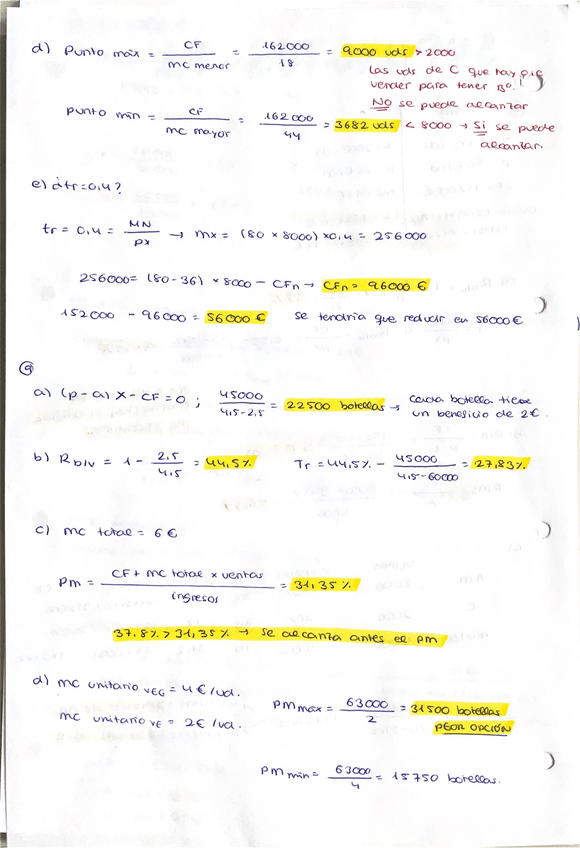 d) Punto máx = CF / mc menor = 162000 / 18 = 9000 uds > 2000
Las uds de C que hay que
vender para tener Bº!
NO se puede alcanzar
Punto mín = CF / mc mayor = 162000 / 44 = 3682 uds < 8000 → Sí se puede
alcanzar.
e) ¿tr=0,4?
tr = 0,4 = MN / px → mx = (80 × 8000) × 0,4 = 256000
256000 = (80-36) × 8000 - CFn → CFn = 96000 €
152000 - 96000 = 56000 € se tendría que reducir en 56000 €
9
a) (p-a) X - CF = 0 ; 45000 / 4,5-2,5 = 22500 botellas → cada botella tiene
un beneficio de 2€.
b) Rb/v = 1 - 2,5 / 4,5 = 44,5% Tr = 44,5% - 45000 / 4,5-60000 = 27,83%
c) mc total = 6 €
Pm = CF + mc total × ventas / ingresos = 31,35 %
37.8% > 31,35 % → se alcanza antes el pm
d) mc unitario VEG = 4 €/ud.
mc unitario VE = 2€ /ud.
PM max = 63000 / 2 = 31500 botellas
PEOR OPCIÓN
PM min = 63000 / 4 = 15750 botellas.